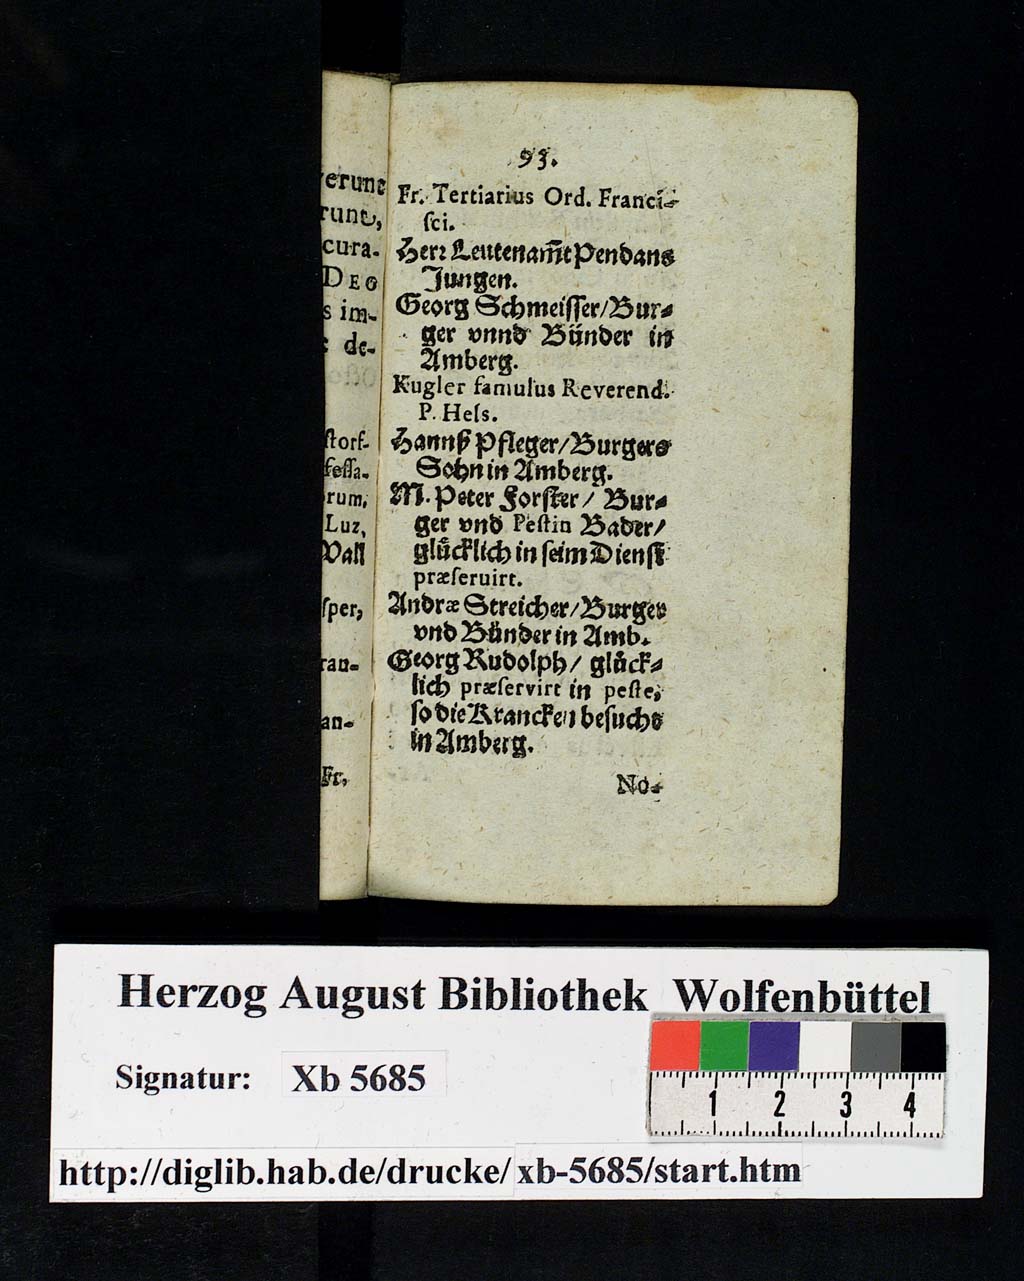 erunt
runt,
cura-
DEO
s im-
de-
storf-
fessa-
rum,
Luz,
Vall
sper,
ran-
an-
Fr,
93.
Fr. Tertiarius Ord. Franci-
ſci.
Herr Leutenam̃t Pendans
Jungen.
Georg Schmeiſſer/Bur-
ger vnnd Bünder in
Amberg.
Kugler famulus Reverend.
P. Hels.
Hannß Pfleger/Burgers
Sohn in Amberg.
M. Peter Forſter/ Bur-
ger vnd Peſtin Bader/
glücklich in ſeim Dienſt
præſeruirt.
Andræ Streicher/Burger
vnd Bünder in Amb.
Georg Rudolph/ glück-
lich præſervirt in peſte,
ſo die Krancken beſucht
in Amberg.
No-
Herzog August Bibliothek Wolfenbüttel
Signatur: Xb 5685
1 2 3 4
http://diglib.hab.de/drucke/xb-5685/start.htm